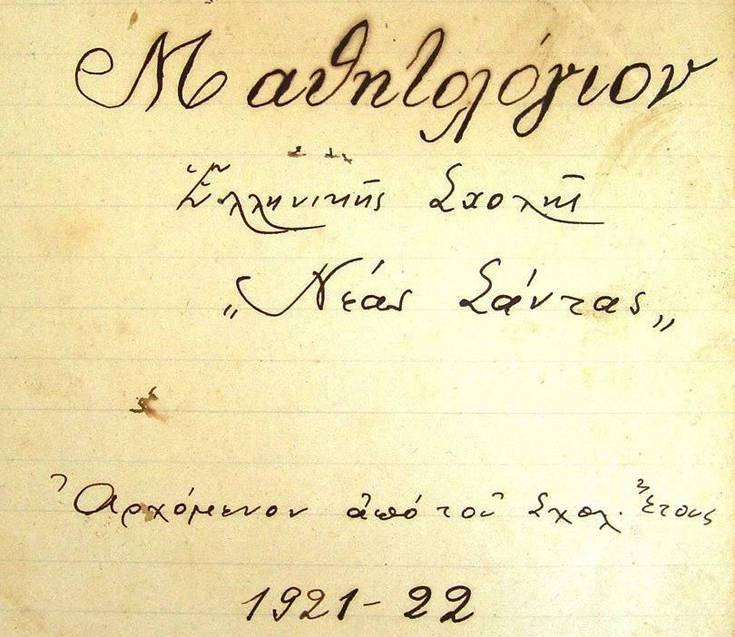 Μαθητολόγιον
Ἑλληνικῆς Σχολῆς
„Νέας Σάντας„
Ἀρχόμενον ἀπὸ τοῦ Σχολ. Ἔτους
1921-22